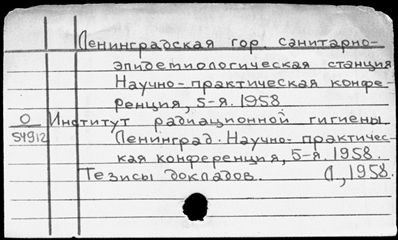 Ленинградская гор. санитарно-
эпидемиологическая станция
Научно-практическая конфе-
ренция, 5-я. 1958
О Институт радиационной гигиены.
54912 Ленинград. Научно-практичес-
кая конференция, 5-я. 1958.
Тезисы докладов. Л., 1958.